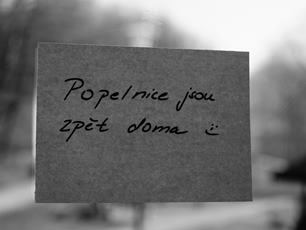 Popelnice jsou
zpět doma :)